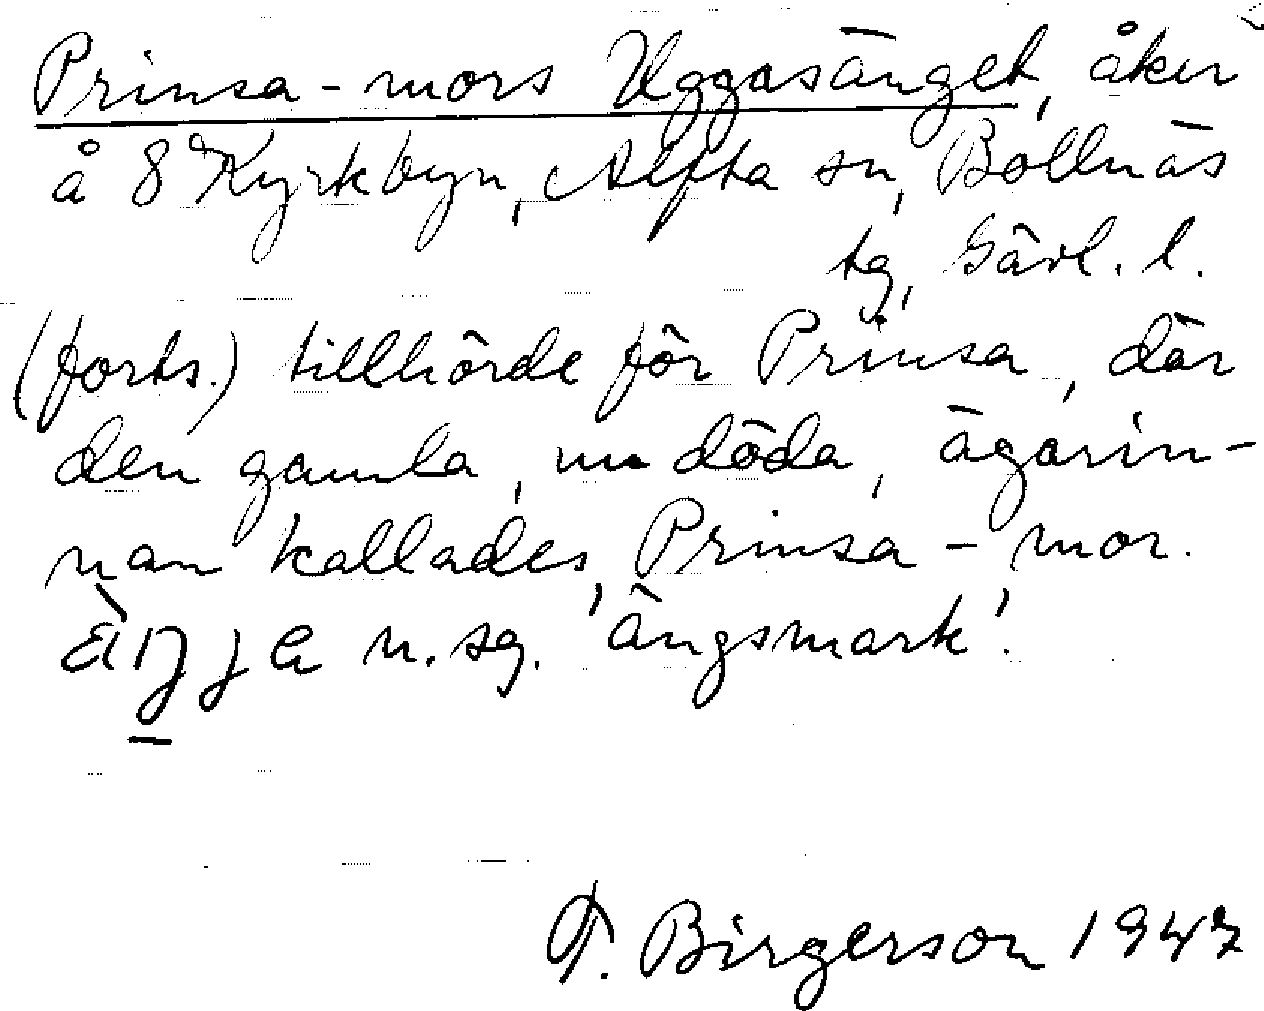 Prinsa-mors Uggasänget, åker
å 8 Kyrkbyn, Alfta sn, Bollnäs
tg, Gävl. l.
(forts.) tillhörde för Prinsa, där
den gamla, nu döda, ägarin-
nan kallades Prinsa-mor.
äŋja n. sg. 'ängsmark'.
T. Birgerson 1947